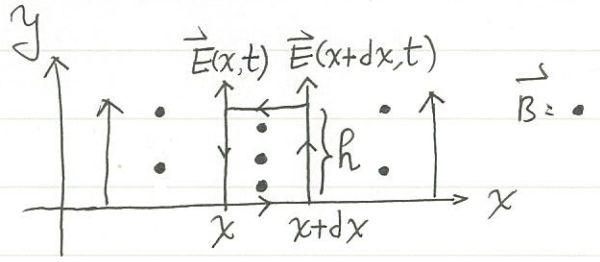 y
E⃗(x,t) E⃗(x+dx,t)
B⃗ = •
h
x x+dx x